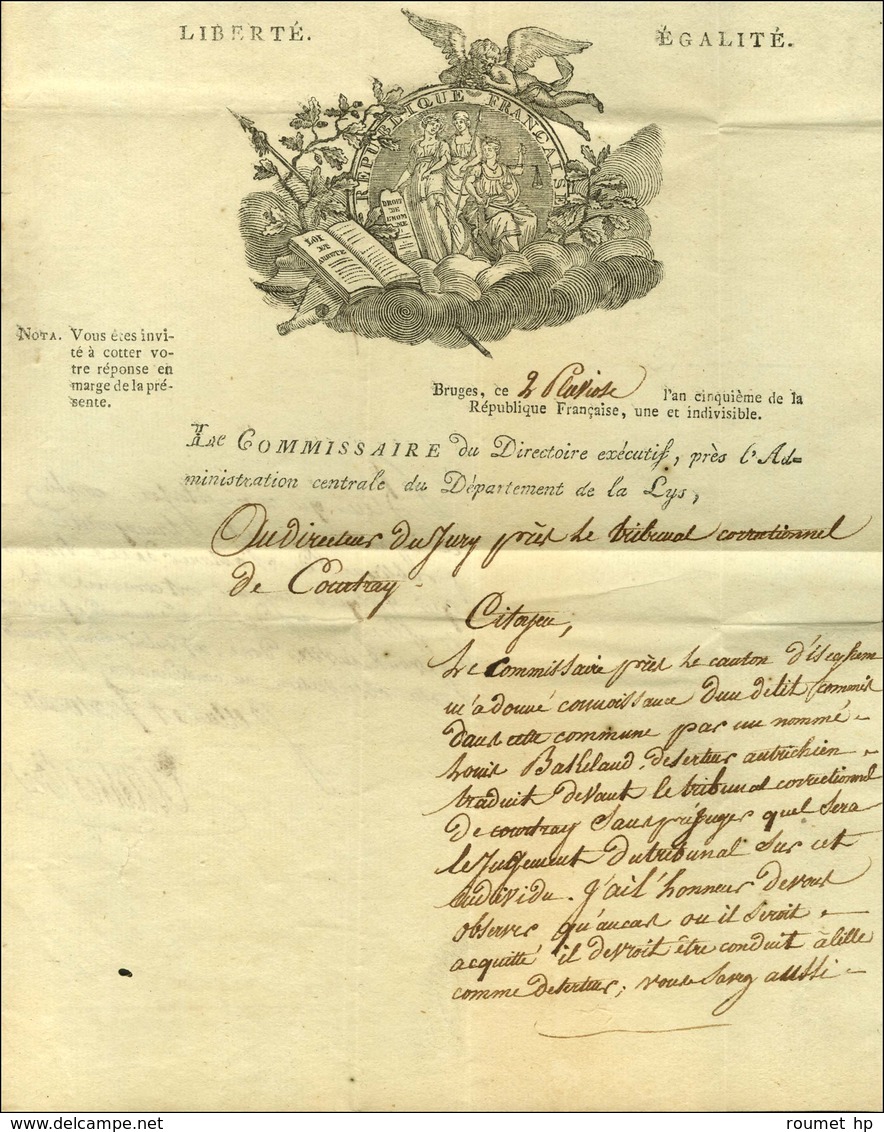 LIBERTÉ. ÉGALITÉ.
RÉPUBLIQUE FRANÇAISE
DROIT
DE
L'HOM
ME
LOI
ET
ARRETÉ
NOTA. Vous êtes invi-
té à cotter vo-
tre réponse en
marge de la pré-
sente.
Bruges, ce 2 Pluviose l'an cinquième de la
République Française, une et indivisible.
Le COMMISSAIRE du Directoire exécutif, près l'Ad=
ministration centrale du Département de la Lys,
Au directeur du Jury près le tribunal correctionnel
de Courtray
Citoyen,
Le Commissaire près le canton d'iseghem
m'a donné connoissance d'un délit commis
dans cette commune par un nommé
Louis deserteur autrichien
traduit devant le tribunal correctionnel
de courtray sans préjuger quel sera
le Jugement du tribunal sur cet
individu. J'ai l'honneur de vous
observer qu'au cas ou il seroit
acquitté il devroit être conduit à lille
comme deserteur, vous savez aussi
roumet hp